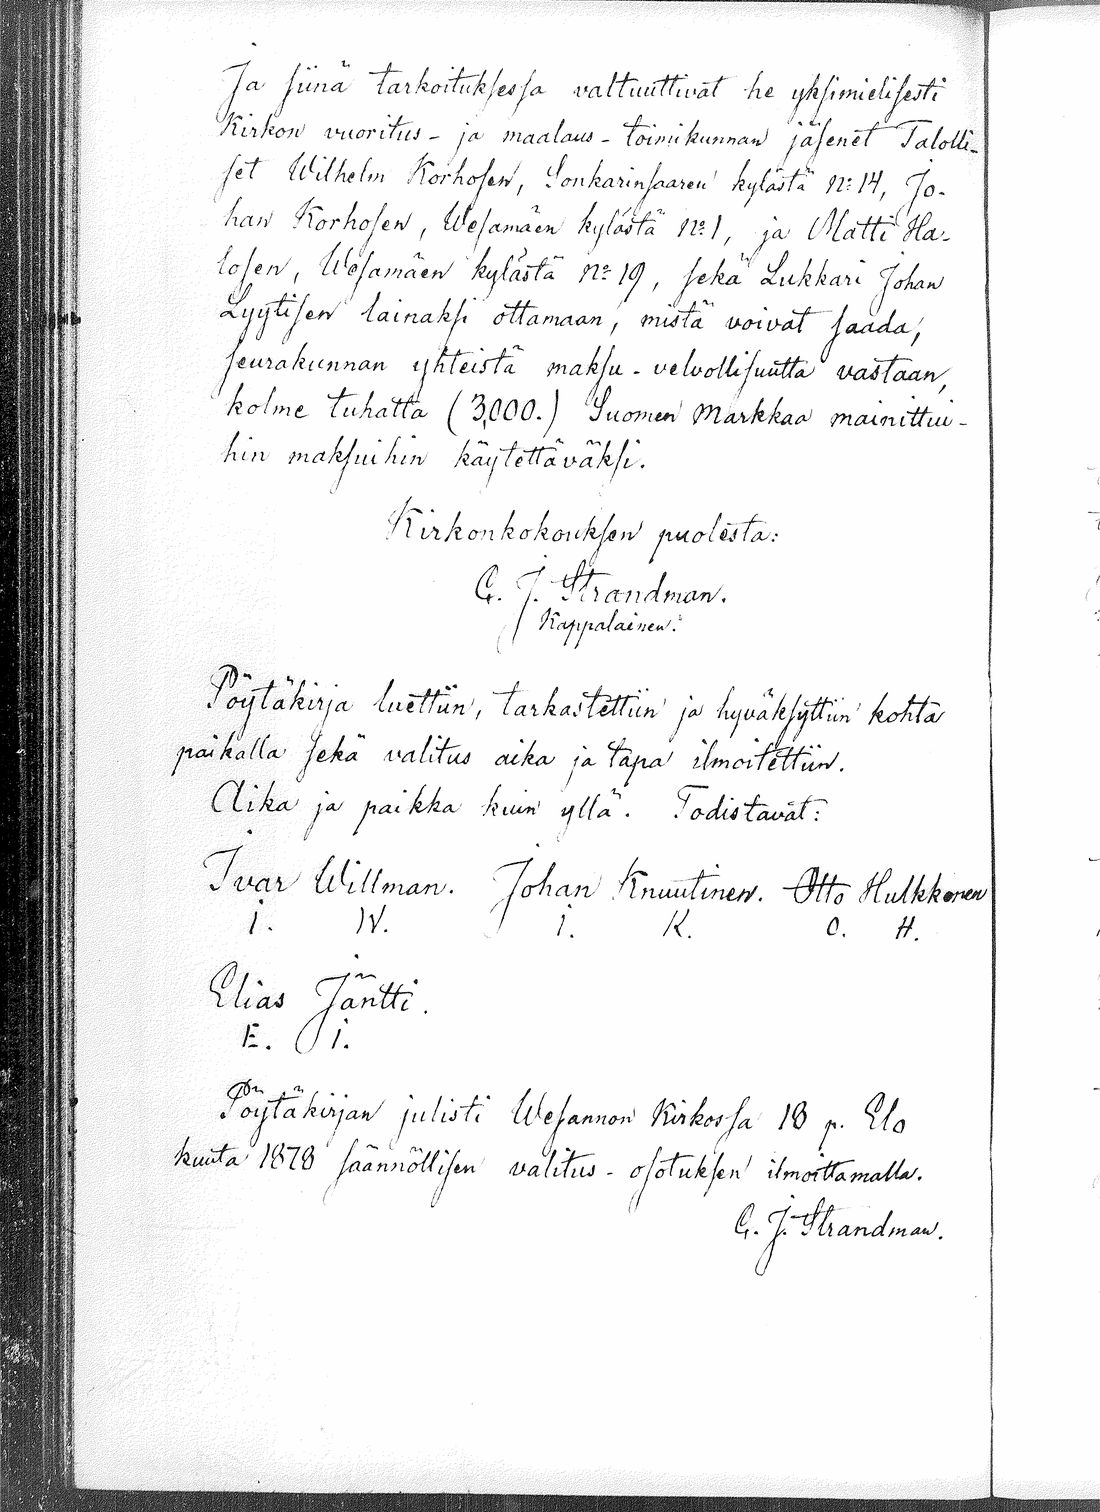 Ja siinä tarkoituksessa valtuuttivat he yksimielisesti
Kirkon vuoritus- ja maalaus-toimikunnan jäsenet Talolli-
set Wilhelm Korhosen, Sonkarinsaaren kylästä No 14, Jo-
han Korhosen, Wesamäen kylästä No 1, ja Matti Ha-
losen, Wesamäen kylästä No 19, sekä Lukkari Johan
Lyytisen lainaksi ottamaan, mistä voivat saada,
seurakunnan yhteistä maksu-velvollisuutta vastaan,
kolme tuhatta (3,000.) Suomen Markkaa mainittui-
hin maksuihin käytettäväksi.
Kirkonkokouksen puolesta:
G. J. Strandman.
Kappalainen.
Pöytäkirja luettiin, tarkastettiin ja hyväksyttiin kohta
paikalla sekä valitus aika ja tapa ilmoitettiin.
Aika ja paikka kuin yllä. Todistavat:
Ivar Willman. Johan Knuutinen. Otto Hulkkonen
I. W. I. K. O. H.
Elias Jäntti.
E. I.
Pöytäkirjan julisti Wesannon Kirkossa 18 p. Elo
kuuta 1878 säännöllisen valitus-osotuksen ilmoittamalla.
G. J. Strandman.